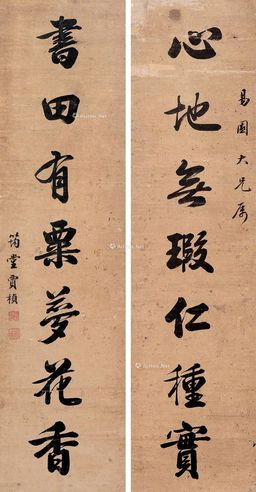 易園大兄属
心地無瑕仁種實
書田有粟夢花香
筠堂賈楨